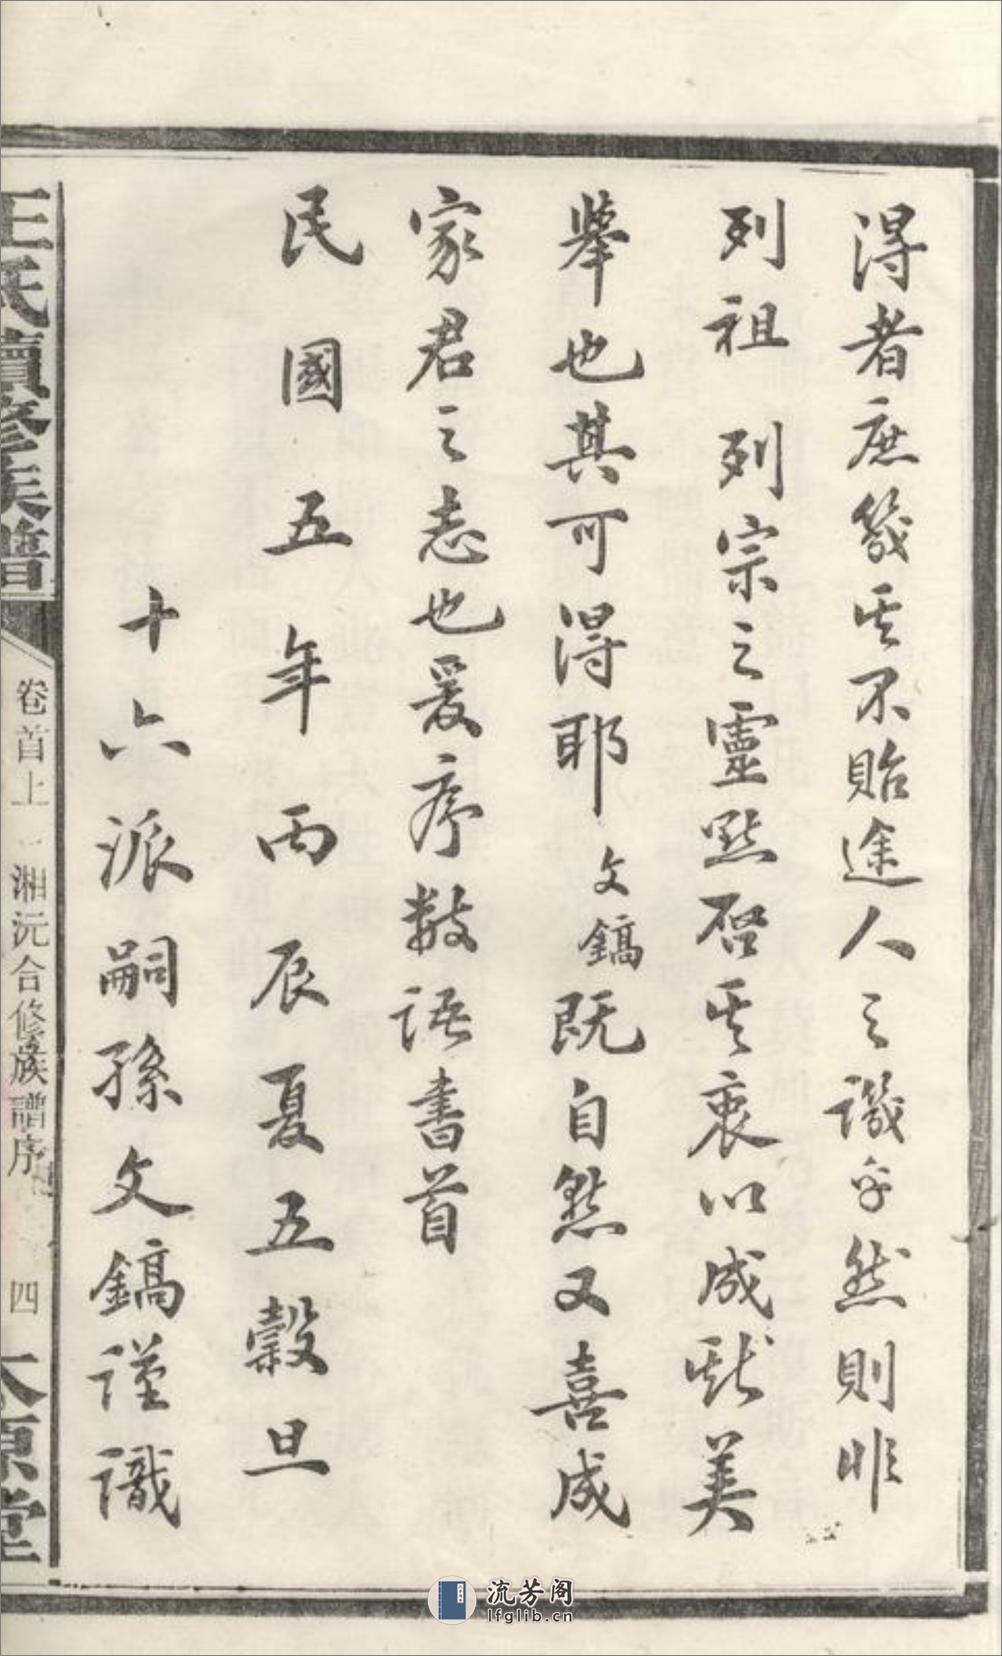 得者庶幾其不貽途人之譏乎然則非
列祖 列宗之靈默啓其衷以成斯美
舉也其可得耶文鎬既自然又喜成
家君之志也爰序數語書首
民國五年丙辰夏五穀旦
十六派嗣孫文鎬謹識
王氏續修族譜
卷首上
湘沅合修族譜序
四
太原堂
流芳阁
lfglib.cn